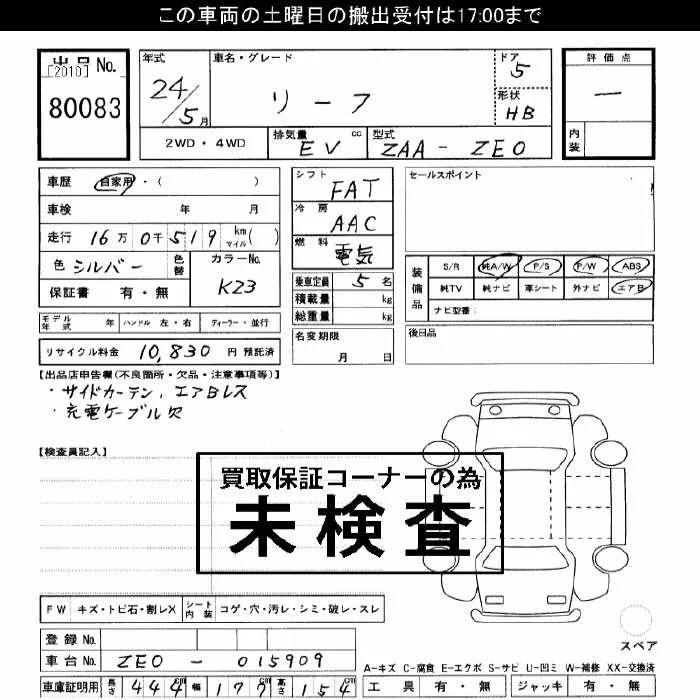 この車両の土曜日の搬出受付は17:00まで
出品 No.
[2010]
80083
年式
24/5月
車名・グレード
リーフ
ドア
5
形状
HB
評価点
一
内装
2WD・4WD
排気量 cc
EV
型式
ZAA-ZE0
車歴 自家用・( )
車検 年 月
走行 16万0千519 km マイル( )
色 シルバー 色替
カラーNo.
K23
保証書 有・無
モデル年式 年 ハンドル 左・右 ディーラー・並行
リサイクル料金 10,830 円 預託済
シフト
FAT
冷房
AAC
燃料
電気
乗車定員 5 名
積載量 kg
総重量 kg
名変期限
月 日
セールスポイント
装備品
S/R 純A/W P/S P/W ABS
純TV 純ナビ 革シート 外ナビ エアB
ナビ型番:
後日品
【出品店申告欄(不良箇所・欠品・注意事項等)】
・サイドカーテン,エアBレス
・充電ケーブル欠
【検査員記入】
買取保証コーナーの為
未検査
FW キズ・トビ石・割レX シート内装 コゲ・穴・汚レ・シミ・破レ・スレ
登録 No.
車台 No. ZE0-015909
車庫証明用 長さ 444cm 幅 177cm 高さ 154cm
スペア
A-キズ C-腐食 E-エクボ S-サビ U-凹ミ W-補修 XX-交換済
工具 有・無 ジャッキ 有・無